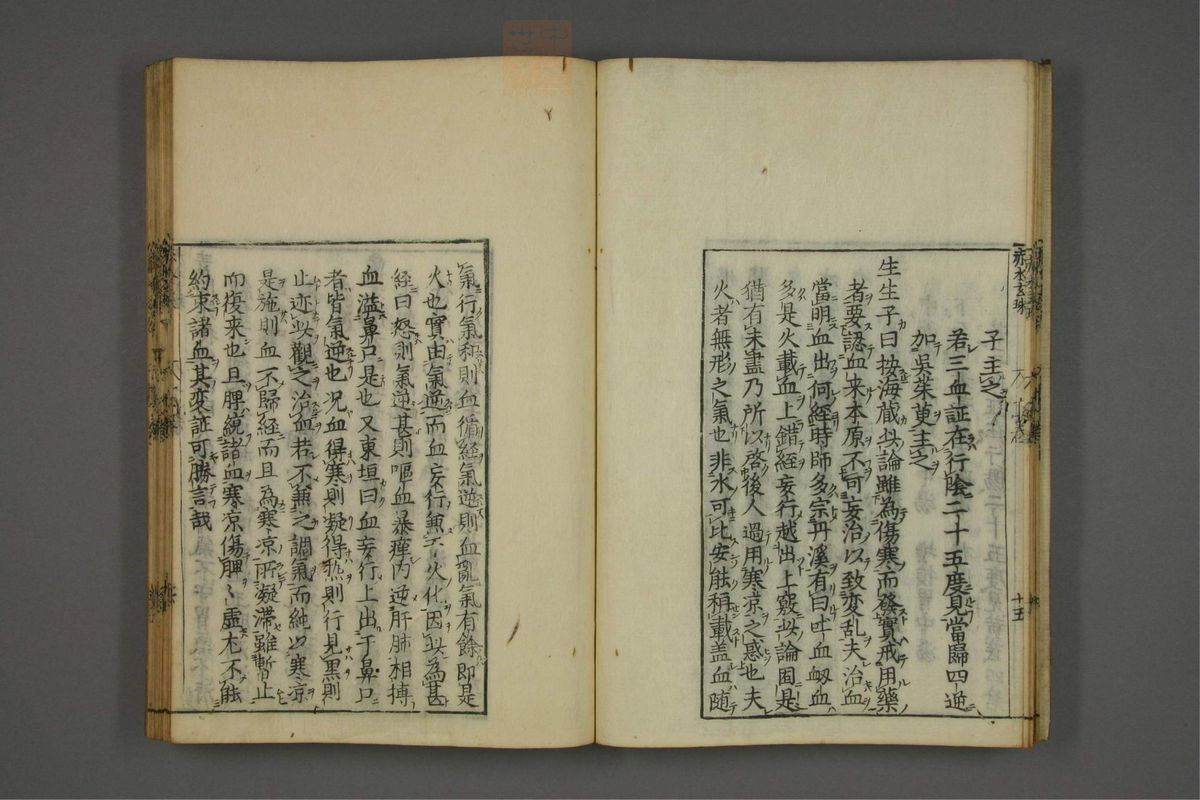 子主之
若三血証在行陰二十五度見當歸四逆
加吳茱萸主之
生生子曰按海蔵此論雖為傷寒而發實戒用藥
者要認血来本原不可妄治以致変乱夫治血
當明血出何經時師多宗丹溪有曰吐血衂血
多是火載血上錯經妄行越出上竅此論固是
猶有未盡乃所以啓後人過用寒凉之惑也夫
火者無形之氣也非水可比安能稱載盖血随
赤水玄珠
十五
氣行氣和則血循經氣逆則血亂氣有餘即是
火也實由氣逆而血妄行兼于火化因此為甚
經曰怒則氣逆甚則嘔血暴癉内逆肝肺相搏
血溢鼻口是也又東垣曰血妄行上出于鼻口
者皆氣逆也况血得寒則凝得熱則行見黑則
止迹此觀之治血若不兼之調氣而純以寒凉
是施則血不歸経而且為寒凉所凝滯雖暫止
而復来也且脾統諸血寒凉傷脾〻虚尤不能
約束諸血其変証可勝言哉